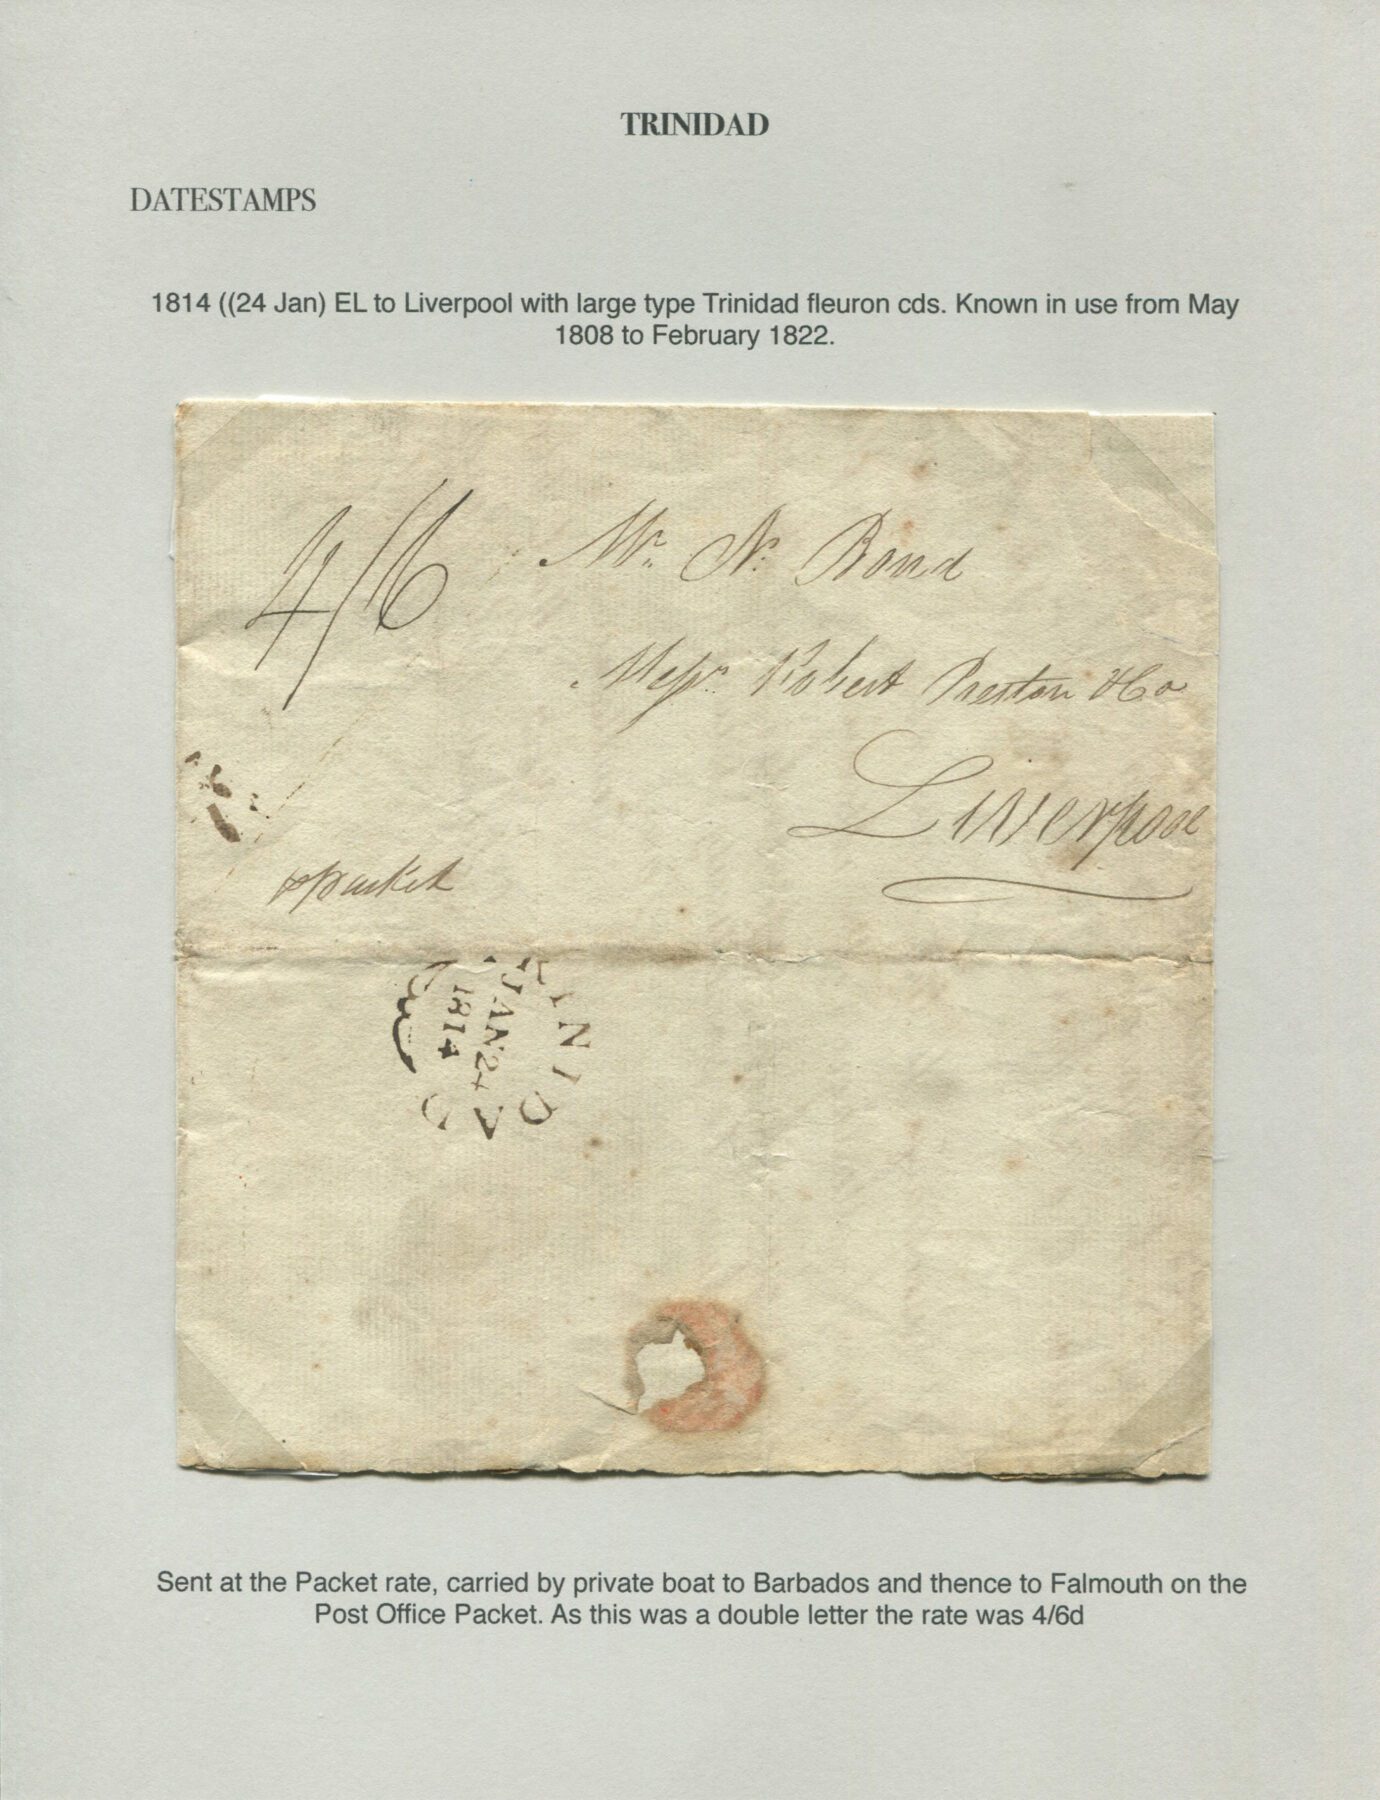 TRINIDAD
DATESTAMPS
1814 ((24 Jan) EL to Liverpool with large type Trinidad fleuron cds. Known in use from May
1808 to February 1822.
4/6
Mr. N. Bond
Messrs. Robert Preston & Co
Liverpool
p packet
TRINIDAD
JAN 24
1814
Sent at the Packet rate, carried by private boat to Barbados and thence to Falmouth on the
Post Office Packet. As this was a double letter the rate was 4/6d